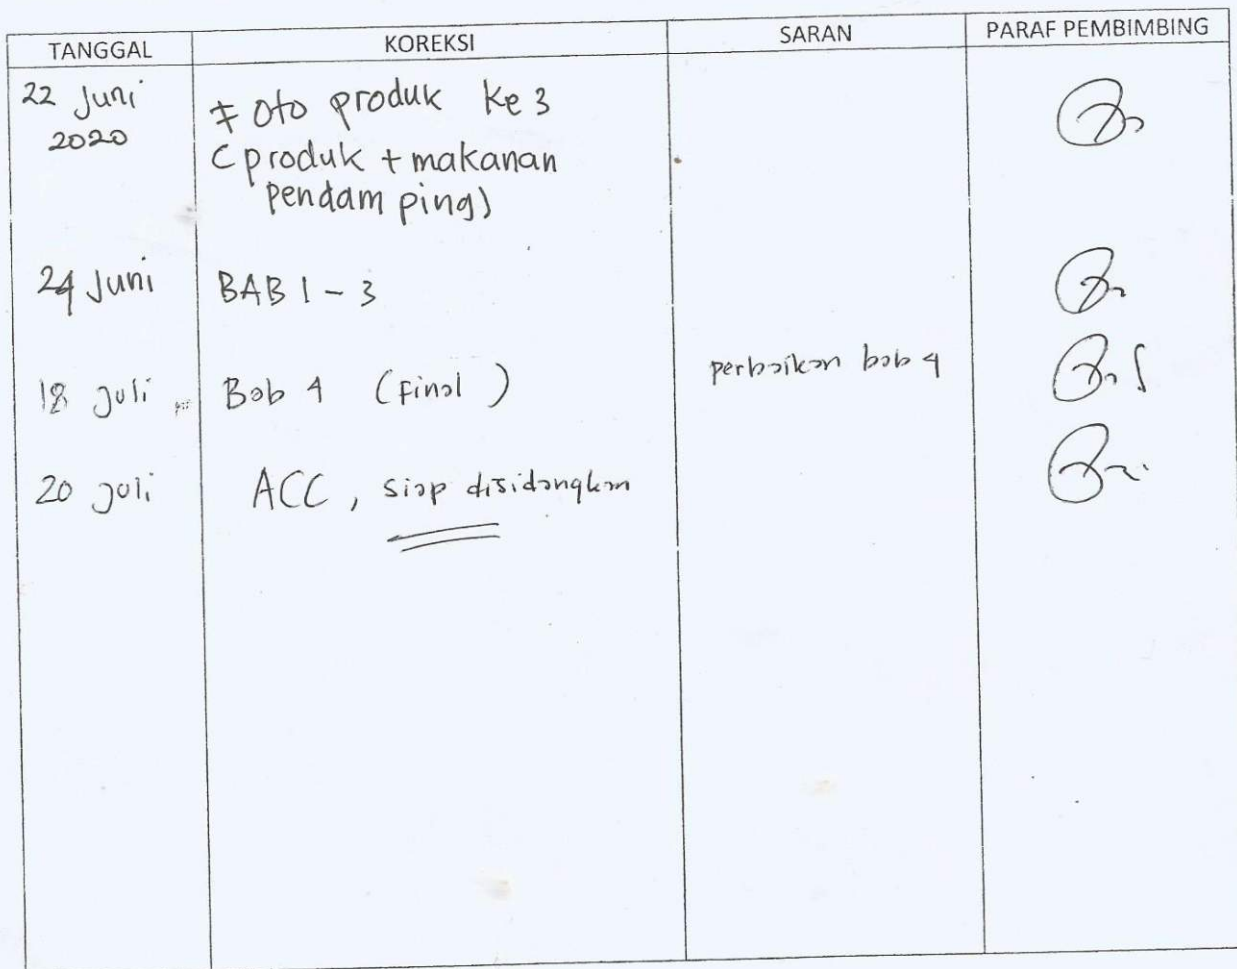 TANGGAL KOREKSI SARAN PARAF PEMBIMBING
22 Juni Foto produk ke 3
2020
(produk + makanan
pendamping)
24 Juni BAB 1 - 3
18 Juli Bab 4 (Final) perbaikan bab 4
20 Juli ACC, siap disidangkan